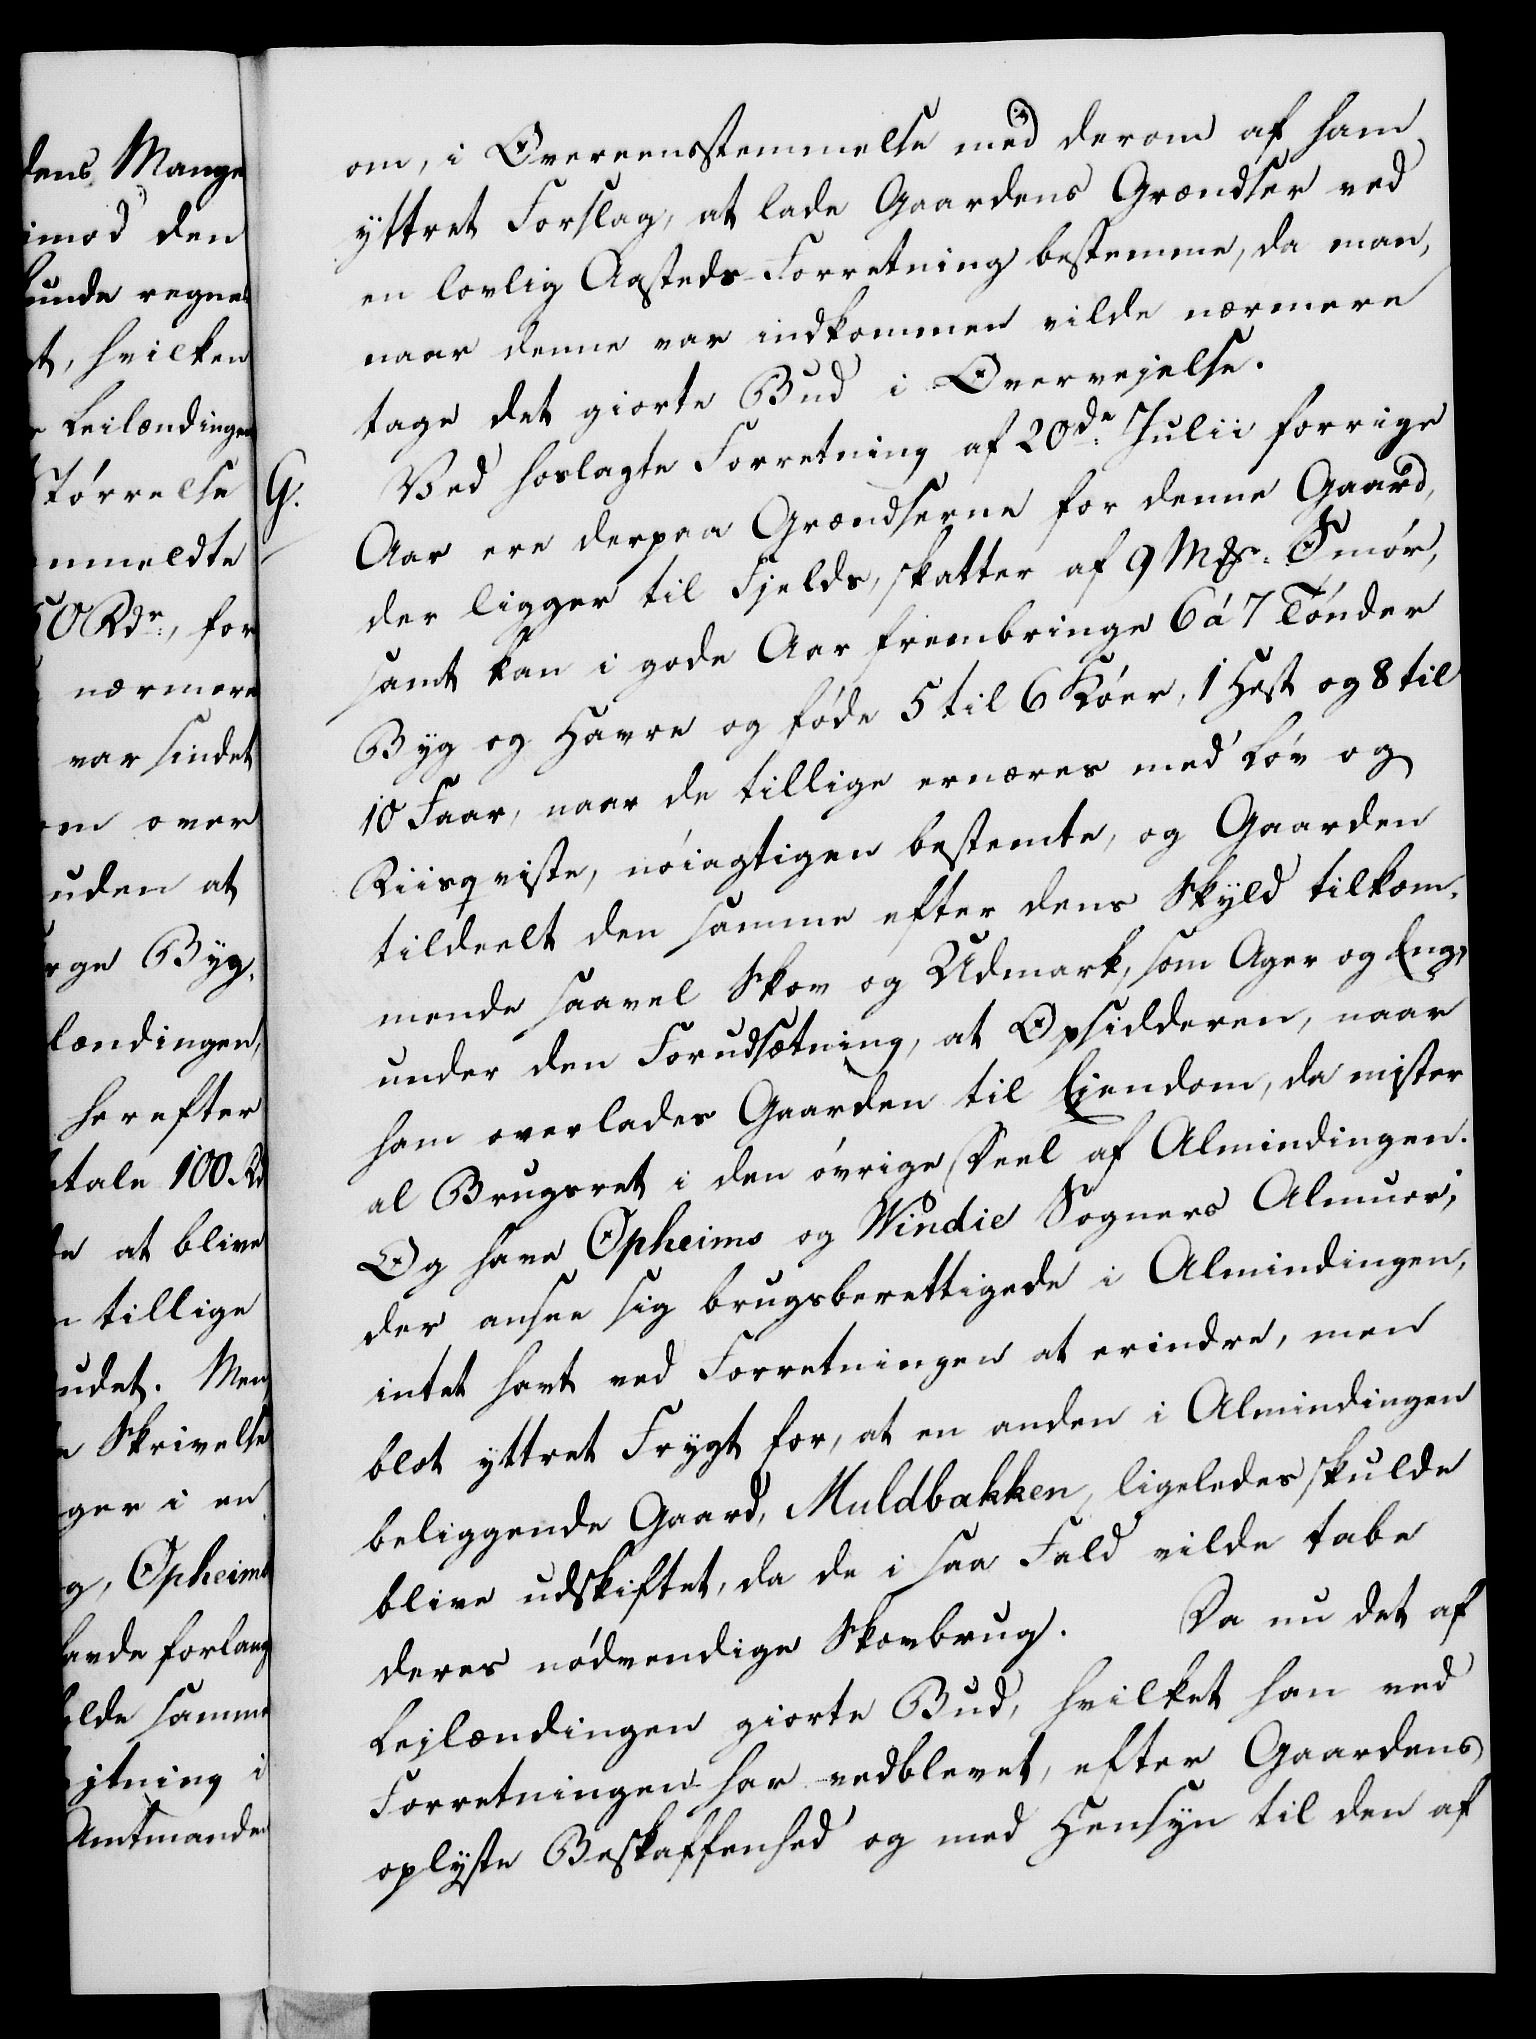 dens Mange
imod den
unde regne
t, hvilken
Leilændingen
størrelse
nmeldte
50 Rdr., for
nærmere
var sindet
om over
uden at
rge Byg,
lændingen,
herefter
tale 100 Rd
at blive
tillige
udet. Men
Skrivelse
ger i en
g, Opheims
avde forlang
lde samme
jtning i
Amtmanden
om, i Overeensstemmelse med derom af ham
yttret Forslag, at lade Gaardens Grændser ved
en lovlig Aasteds-Forretning bestemme, da man,
naar denne var indkommen vilde nærmere
tage det giorte Bud i Overvejelse.
G. Ved hoslagte Forretning af 20de Julii forrige
Aar ere derpaa Grændserne for denne Gaard,
der ligger til Fjelds, skatter af 9 Mkr. Smör,
samt kan i gode Aar frembringe 6 á 7 Tönder
Byg og Havre og föde 5 til 6 Köer, 1 Hest og 8 til
10 Faar, naar de tillige ernæres med Löv og
Riisqviste, nöiagtigen bestemte, og Gaarden
tildeelt den samme efter dens Skyld tilkom-
mende saavel Skov og Udmark, som Ager og Eng,
under den Forudsætning, at Opsidderen, naar
ham overlades Gaarden til Ejendom, da mister
al Brugsret i den övrige Deel af Almindingen.
Og have Opheims og Windie Sogners Almuer,
der ansee sig brugsberettigede i Almindingen,
intet havt ved Forretningen at erindre, men
blot yttret Frygt for, at en anden i Almindingen
beliggende Gaard, Muldbakken, ligeledes skulde
blive udskiftet, da de i saa Fald vilde tabe
deres nödvendige Skovbrug. Da nu det af
Lejlændingen giorte Bud, hvilket han ved
Forretningen har vedblevet, efter Gaardens
oplyste Beskaffenhed og med Hensyn til den af